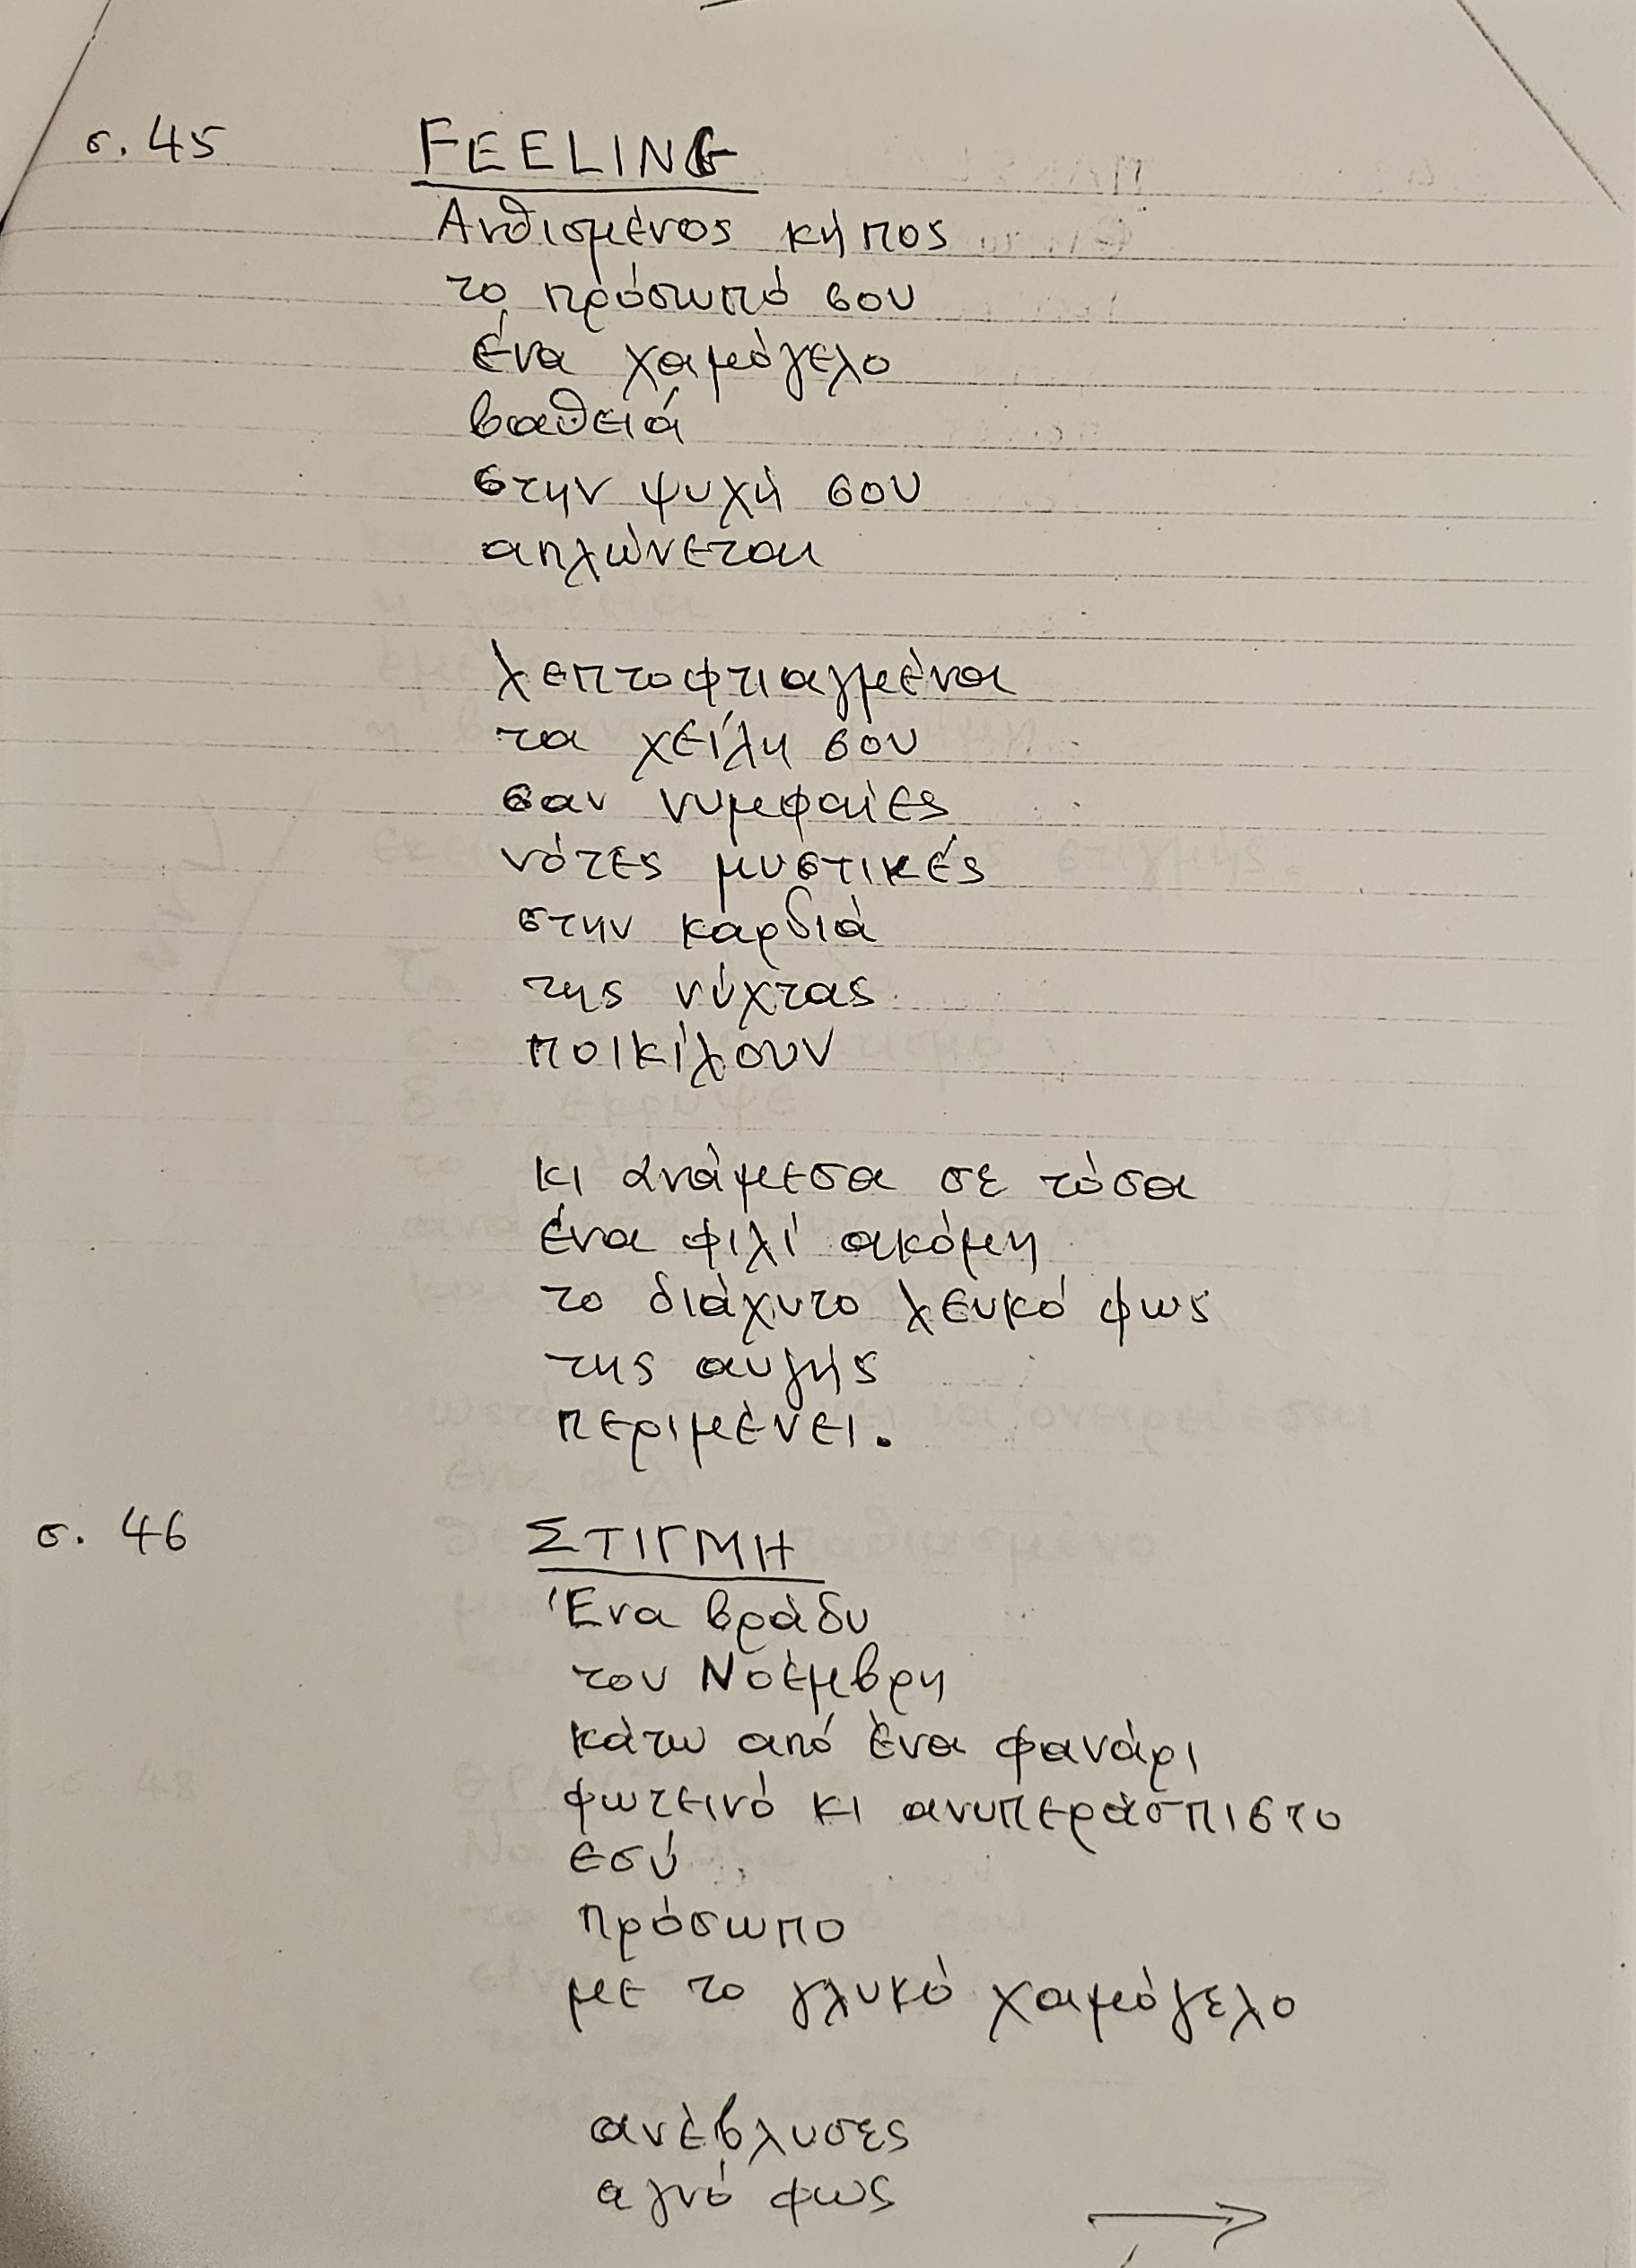 σ. 45 FEELING
Ανθισμένος κήπος
το πρόσωπό σου
ένα χαμόγελο
βαθειά
στην ψυχή σου
απλώνεται
λεπτοφτιαγμένα
τα χείλη σου
σαν νυμφαίες
νότες μυστικές
στην καρδιά
της νύχτας
ποικίλουν
κι ανάμεσα σε τόσα
ένα φιλί ακόμη
το διάχυτο λευκό φως
της αυγής
περιμένει.
σ. 46 ΣΤΙΓΜΗ
Ένα βράδυ
του Νοέμβρη
κάτω από ένα φανάρι
φωτεινό κι ανυπεράσπιστο
εσύ
πρόσωπο
με το γλυκό χαμόγελο
ανέβλυσες
αγνό φως